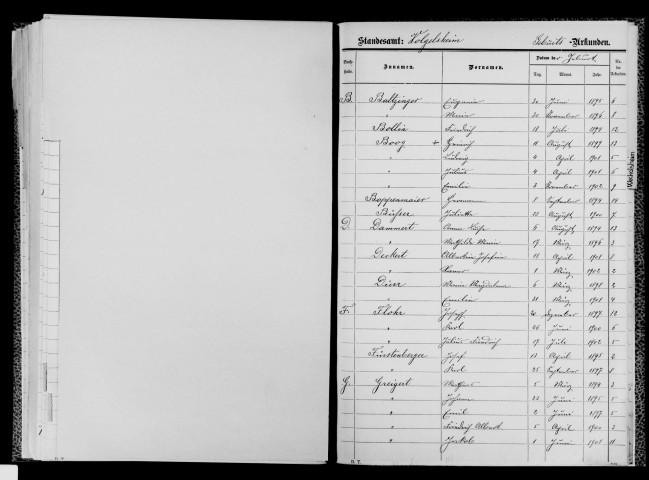 Standesamt: Volgelsheim Geburts-Urkunden.
Buchstabe. Zunamen. Vornamen. Datum der Geburt Tag. Monat. Jahr. Nr. der Urkunden.
B. Baltzinger Eugenie 30 Juni 1895 6
" Maria 30 November 1896 8
Bollia Friedrich 18 Juli 1894 12
Boog + Heinrich 11 August 1899 13
" Ludwig 4 April 1901 5
" Julius 4 April 1901 6
" Emilie 3 November 1902 9
Boppenmaier Hermann 8 September 1894 14
Juliette August 1900 7
D. Dammert Anna August 1894 13
" Mathilde Maria 17 März 1896 3
Deckert Josefina 18 April 1901 8
" 1 März 1902 2
Dürr Maria Magdalena 6 März 1898 2
" Emilie 31 März 1901 4
F. Flohr Joseph September 1897 12
" Karl 26 Juni 1900 6
" Julius Friedrich 17 Juli 1902 5
Fürstenberger Josef 13 April 1895 2
" Karl 25 September 1897 8
G. Greigert Mathias 5 März 1894 3
" Johann 22 Juni 1895 5
" Emil 2 Juni 1897 5
" Friedrich Albert 5 April 1900 3
" Jakob 1 Juni 1901 11